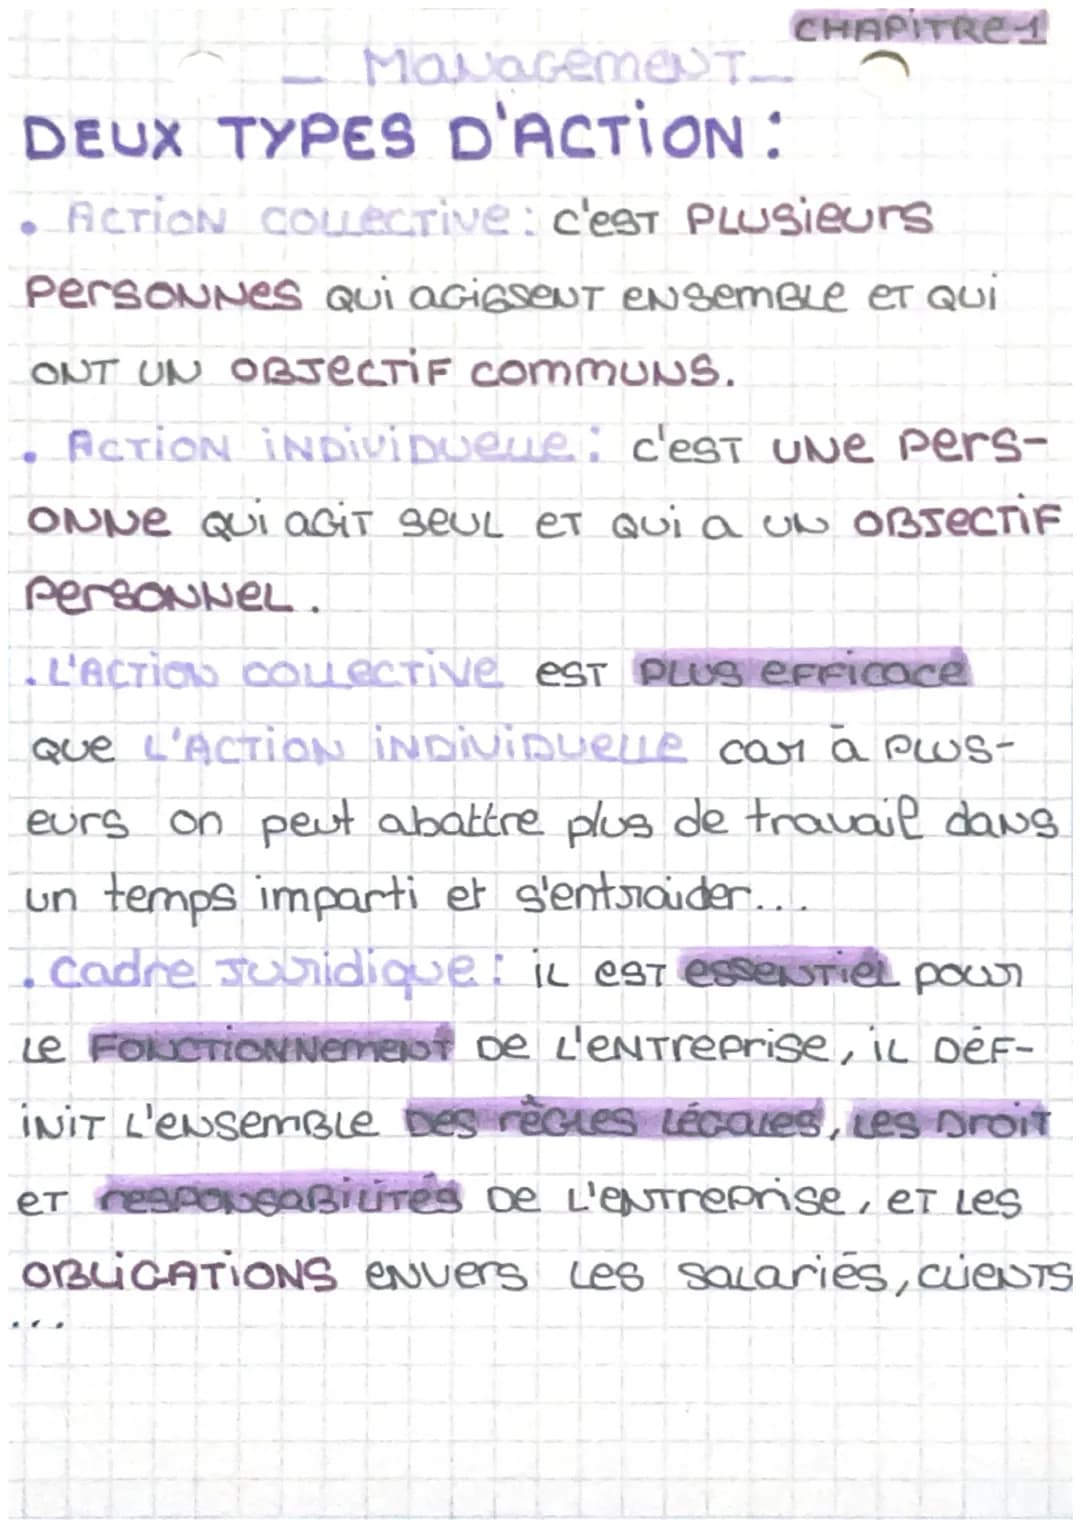 CHAPITRE-1
_ Management _
DEUX TYPES D'ACTION :
. ACTION COLLECTIVE : C'EST PLUSIEURS
PERSONNES QUI AGISSENT ENSEMBLE ET QUI
ONT UN OBJECTIF COMMUNS.
. ACTION INDIVIDUELLE : C'EST UNE PERS-
ONNE QUI AGIT SEUL ET QUI A UN OBJECTIF
PERSONNEL.
. L'ACTION COLLECTIVE EST PLUS EFFICACE
QUE L'ACTION INDIVIDUELLE car à PLUS-
eurs on peut abattre plus de travail dans
un temps imparti et s'entraider...
. Cadre Juridique : IL EST ESSENTIEL pour
LE FONCTIONNEMENT DE L'ENTREPRISE, IL DÉF-
INIT L'ENSEMBLE DES RÈGLES LÉGALES, LES DROIT
ET RESPONSABILITÉS DE L'ENTREPRISE, ET LES
OBLIGATIONS ENVERS LES SALARIÉS, CLIENTS
...